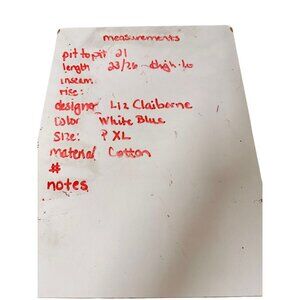 measurements
pit to pit 21
length 23/26 - high-lo
inseam
rise:
designer Liz Claiborne
Color White Blue
Size: ? XL
material Cotton
#
notes